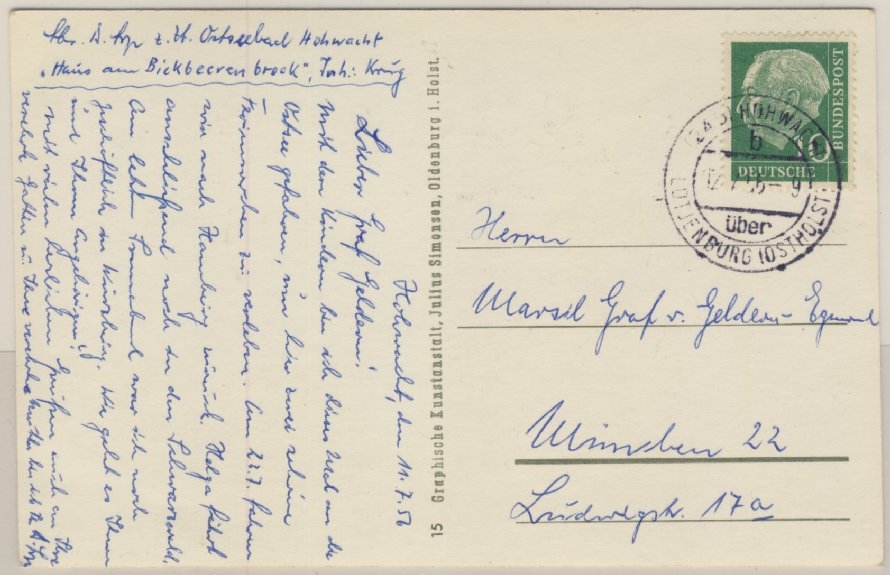 z. Zt. Ostseebad Hohwacht
"Haus am Bickbeerenbrook", Inh.: Krug
Hohwacht, den 11.7.56
Lieber Graf Geldern!
Mit den Kindern bin ich dieses Mal an die
Ostsee gefahren, um hier zwei schöne
Ferienwochen zu verleben. Am 22.7. fahren
wir nach Hamburg zurück. Helga fährt
anschließend noch in den Schwarzwald.
Am letzten Sonnabend war ich noch
geschäftlich in Würzburg. Wie geht es Ihnen
und Ihren Angehörigen?
Mit vielen herzlichen Grüßen auch an Ihre
verehrte Gattin u. Ihre verehrte Mutter bin ich Ihr
15 Graphische Kunstanstalt, Julius Simonsen, Oldenburg i. Holst.
DEUTSCHE
BUNDESPOST
HOHWACHT
b
über
LÜTJENBURG (OSTHOLST)
Herrn
Marsil Graf v. Geldern-Egmond
München 22
Ludwigstr. 17a